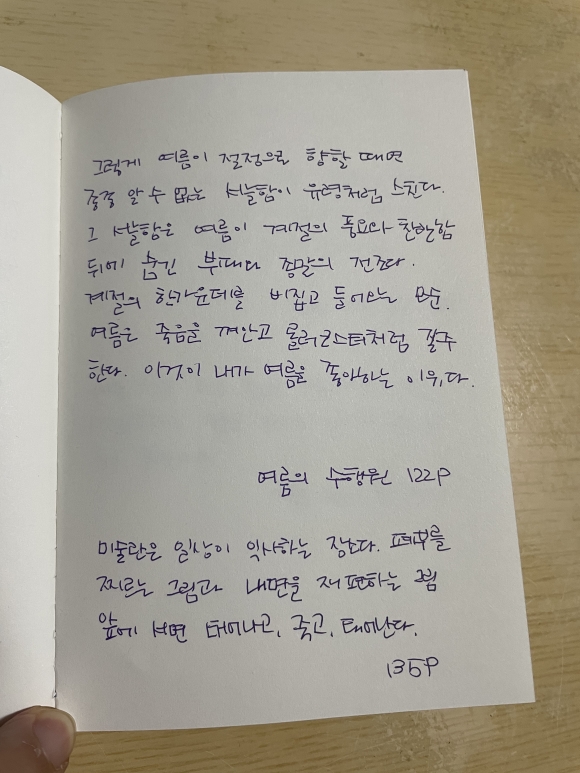 그렇게 여름이 절정으로 향할 때면
종종 알 수 없는 서늘함이 유령처럼 스친다.
그 서늘함은 여름이 계절의 풍요와 찬란함
뒤에 숨긴 부패다 종말의 전조다.
계절의 한가운데를 비집고 들어오는 모순.
여름은 죽음을 껴안고 롤러코스터처럼 질주
한다. 이것이 내가 여름을 좋아하는 이유다.
여름의 수행원 122P
미술관은 일상이 익사하는 장소다. 폐부를
찌르는 그림과 내면을 재편하는 그림
앞에 서면 태어나고, 죽고, 태어난다.
135P